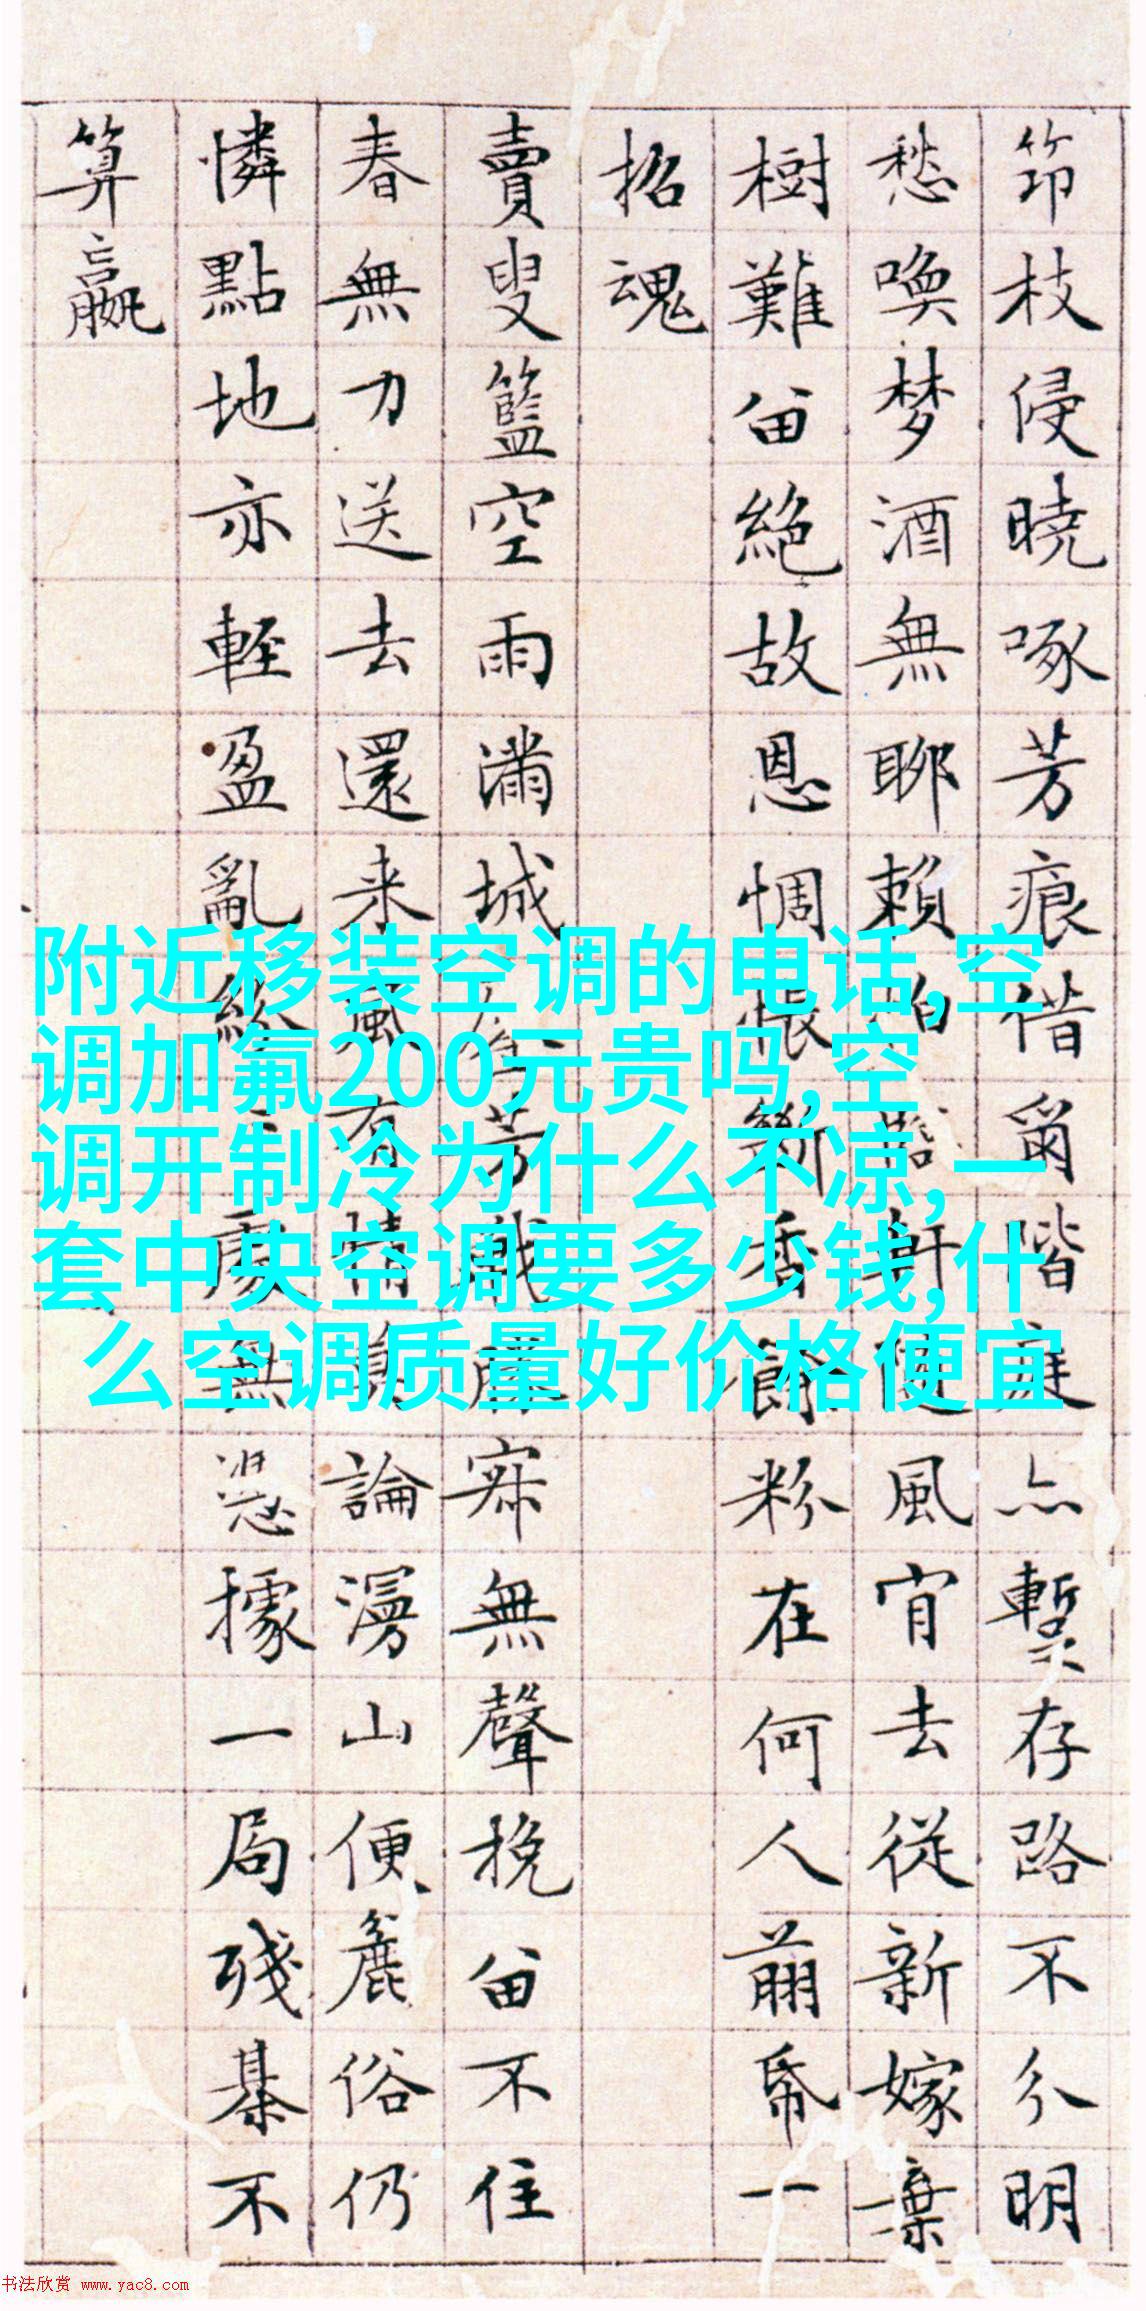 筇枝侵曉啄芳痕借爾階庭亦暫存路不分明
愁喚梦酒無聊賴怕臨軒隨風肯去從新嫁棄
樹難留絕故恩惆悵斷香餘粉在何人剪帋一
招魂
賣叟籃空雨滿城芳寐無聲挽留不住
春無力送去還来風有情莫論漫山便麁俗仍
憐點地亦輕盈亂紛處無憑據一局殘棊不
算嬴
附近移装空调的电话,空
调加氟200元贵吗,空
调开制冷为什么不凉,一
套中央空调要多少钱,什
么空调质量好价格便宜
书法欣赏 www.yac8.com